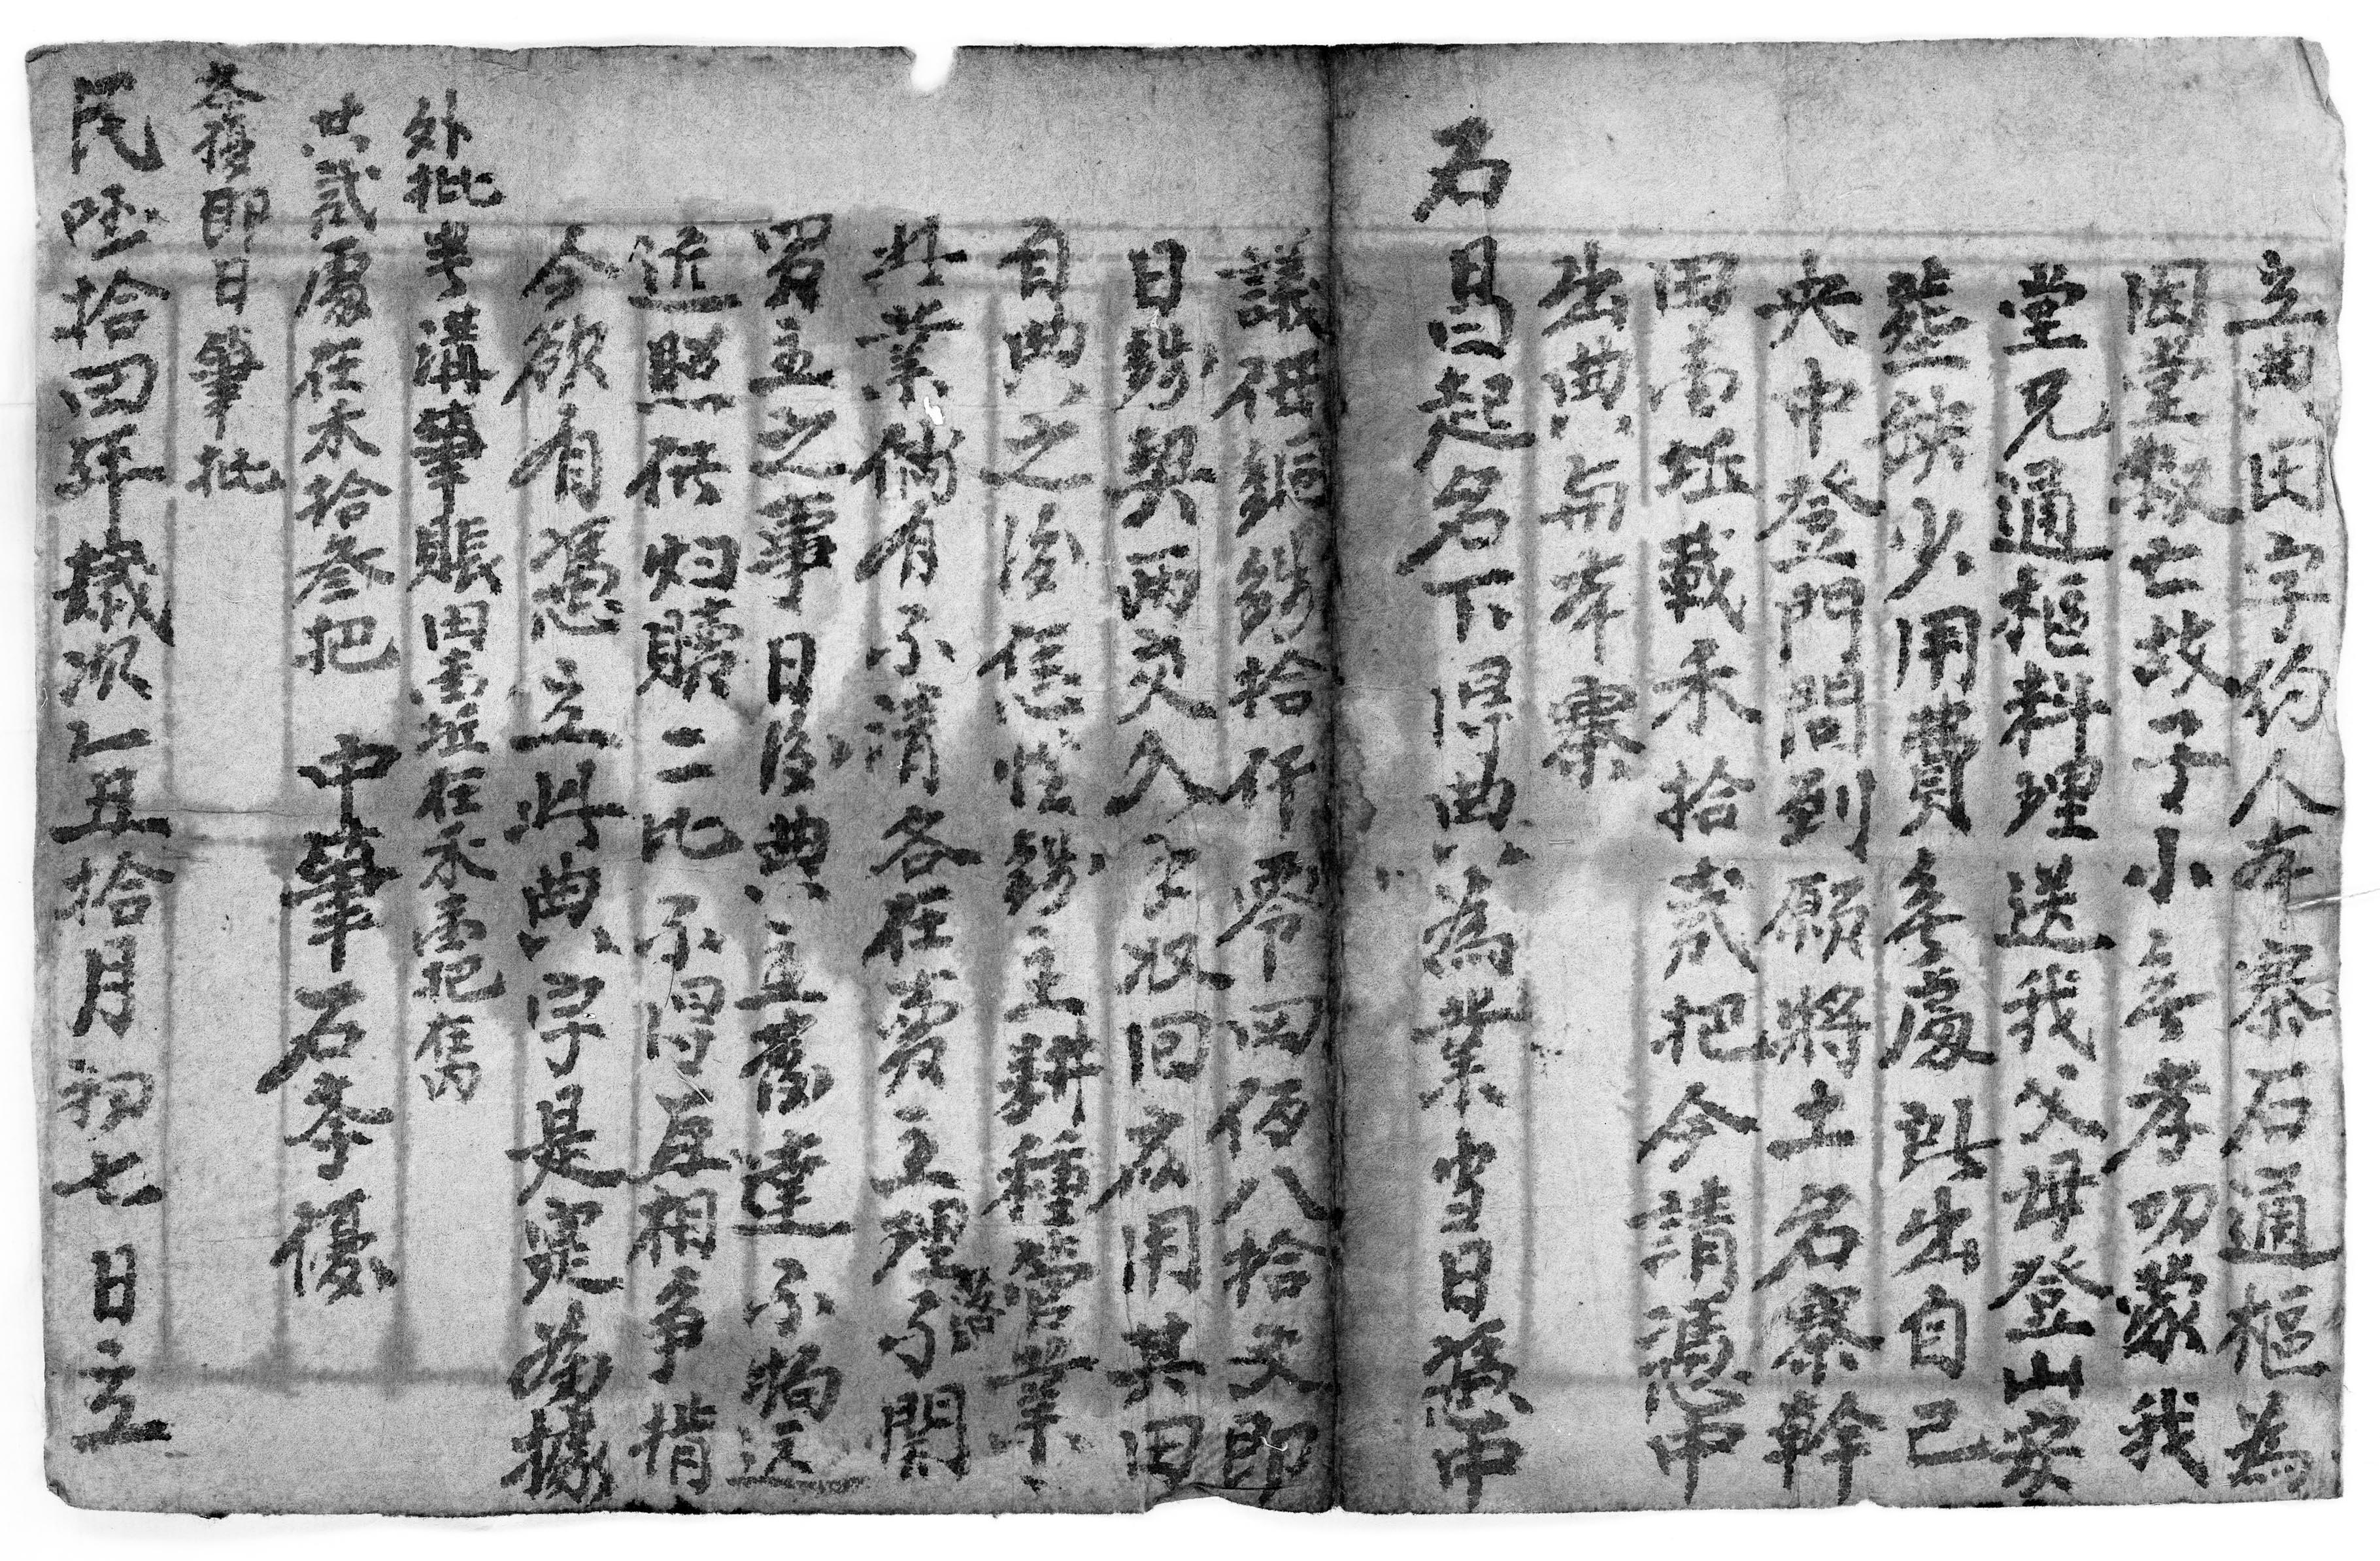 立典田字約人本寨石通樞為
因堂叔亡故子小無孝功蒙我
堂兄通樞料理送我父母登山安
塟缺少用費無處出自己
央中登門問到願將土名寨幹
田壹坵載禾拾貳把今請憑中
出典與本寨
石昌起名下得典為業當日憑中
議價銅錢拾仟零四佰八拾文即
日錢契兩交入手收回應用其田
自典之後任憑錢主耕種管業
此業倘有不清各在賣主理落不關
買主之事日後典主舊達不拘遠
近照依歸贖二比不得互相爭揹
今欲有憑立此典字是實為據
外批岑溝筆賬田壹坵在禾壹把在內
共貳處在禾拾叄把
中筆石孝優
孝優即日筆批
民國拾四年歲次乙丑拾月初七日立